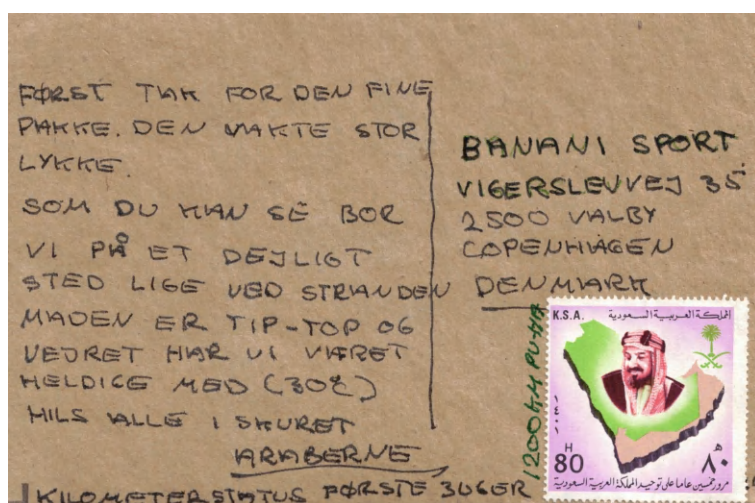 FØRST TAK FOR DEN FINE
PAKKE. DEN VAKTE STOR
LYKKE.
SOM DU KAN SE BOR
VI PÅ ET DEJLIGT
STED LIGE VED STRANDEN
MADEN ER TIP-TOP OG
VEJRET HAR VI VÆRET
HELDIGE MED (30%)
HILS ALLE I SKURET
ARABERNE
KILOMETERSTATUS FØRSTE 3UGER
1200KM PUHA
BANANI SPORT
VIGERSLEVVEJ 35
2500 VALBY
COPENHAGEN
DENMARK
K.S.A. المملكة العربية السعودية
١٤٠١
H ه
80 ٨٠
مرور خمسين عاما على توحيد المملكة العربية السعودية